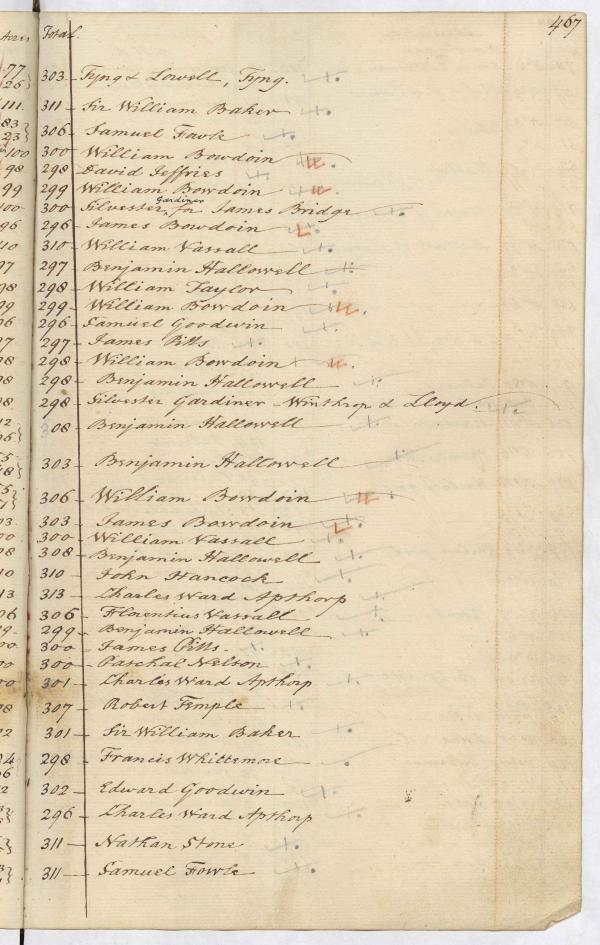 467
Acres Total.
77 303 - Tyng & Lowell, Tyng.
26}
111. 311 - Sir William Baker
83} 306 - Samuel Fowle
23}
100 300 - William Bowdoin
98 298 - David Jeffries
99 299 - William Bowdoin
100 300 - Silvester Gardiner, James Bridge
96 296 - James Bowdoin
110 310 - William Vassall
97 297 - Benjamin Hallowell
98 298 - William Taylor
99 299 - William Bowdoin
96 296 - Samuel Goodwin
97 297 - James Pitts
98 298 - William Bowdoin
98 298 - Benjamin Hallowell
98 298 - Silvester Gardiner - Winthrop & Lloyd.
308 - Benjamin Hallowell
303 - Benjamin Hallowell
306 - William Bowdoin
303 - James Bowdoin
300 - William Vassall
308 - Benjamin Hallowell
310 - John Hancock
313 - Charles Ward Apthorp
306 - Florentius Vassall
299 - Benjamin Hallowell
300 - James Pitts.
300 - Paschal Nelson
301 - Charles Ward Apthorp
307 - Robert Temple
301 - Sir William Baker
298 - Francis Whittemore
302 - Edward Goodwin
296 - Charles Ward Apthorp
311 - Nathan Stone
311 - Samuel Fowle